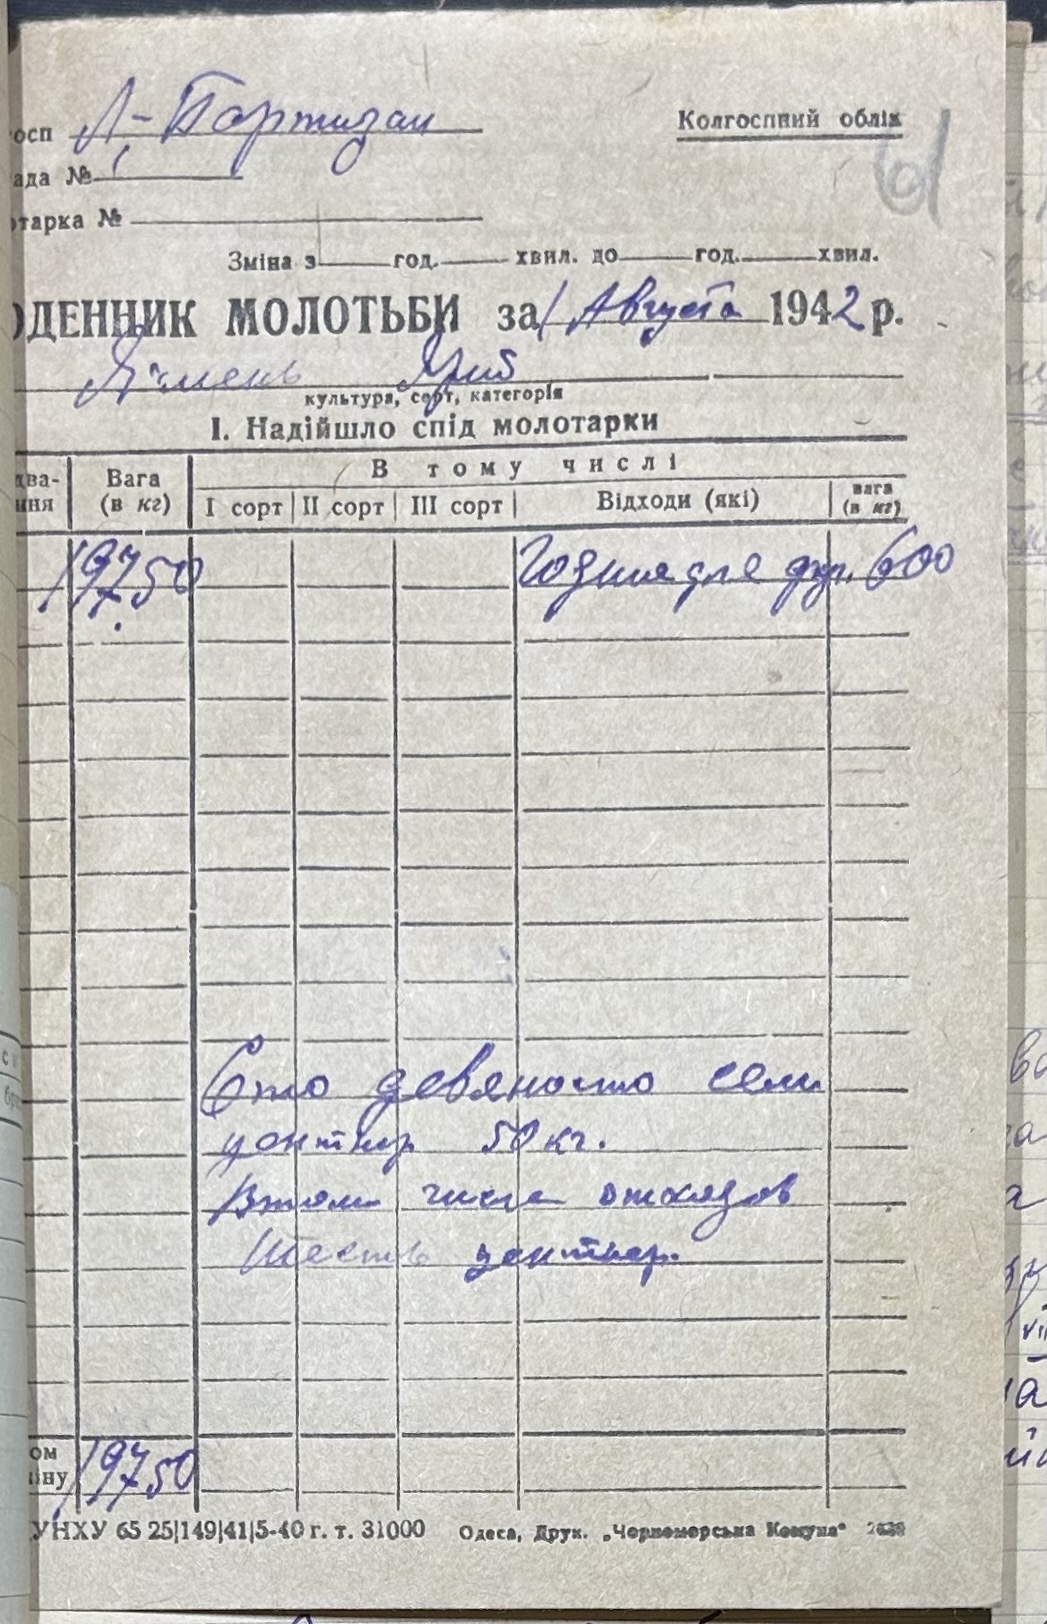 осп Л-Партизан
Колгоспний облік
61
ада № 1
отарка №
Зміна з год. хвил. до год. хвил.
ОДЕННИК МОЛОТЬБИ за 1 Августа 1942 р.
Ячмень Ярий
культура, сорт, категорія
I. Надійшло спід молотарки
ква-
ння
Вага
(в кг)
В тому числі
I сорт II сорт III сорт Відходи (які) вага
(в кг)
19750 Годная для фур. 600
Сто девяносто семь
центнер 50 кг.
В том числе отходов
Шесть центнер.
ом
іну 19750
УНХУ 65 25|149|41|5-40 г. т. 31000 Одеса, Друк. „Чорноморська Комуна“